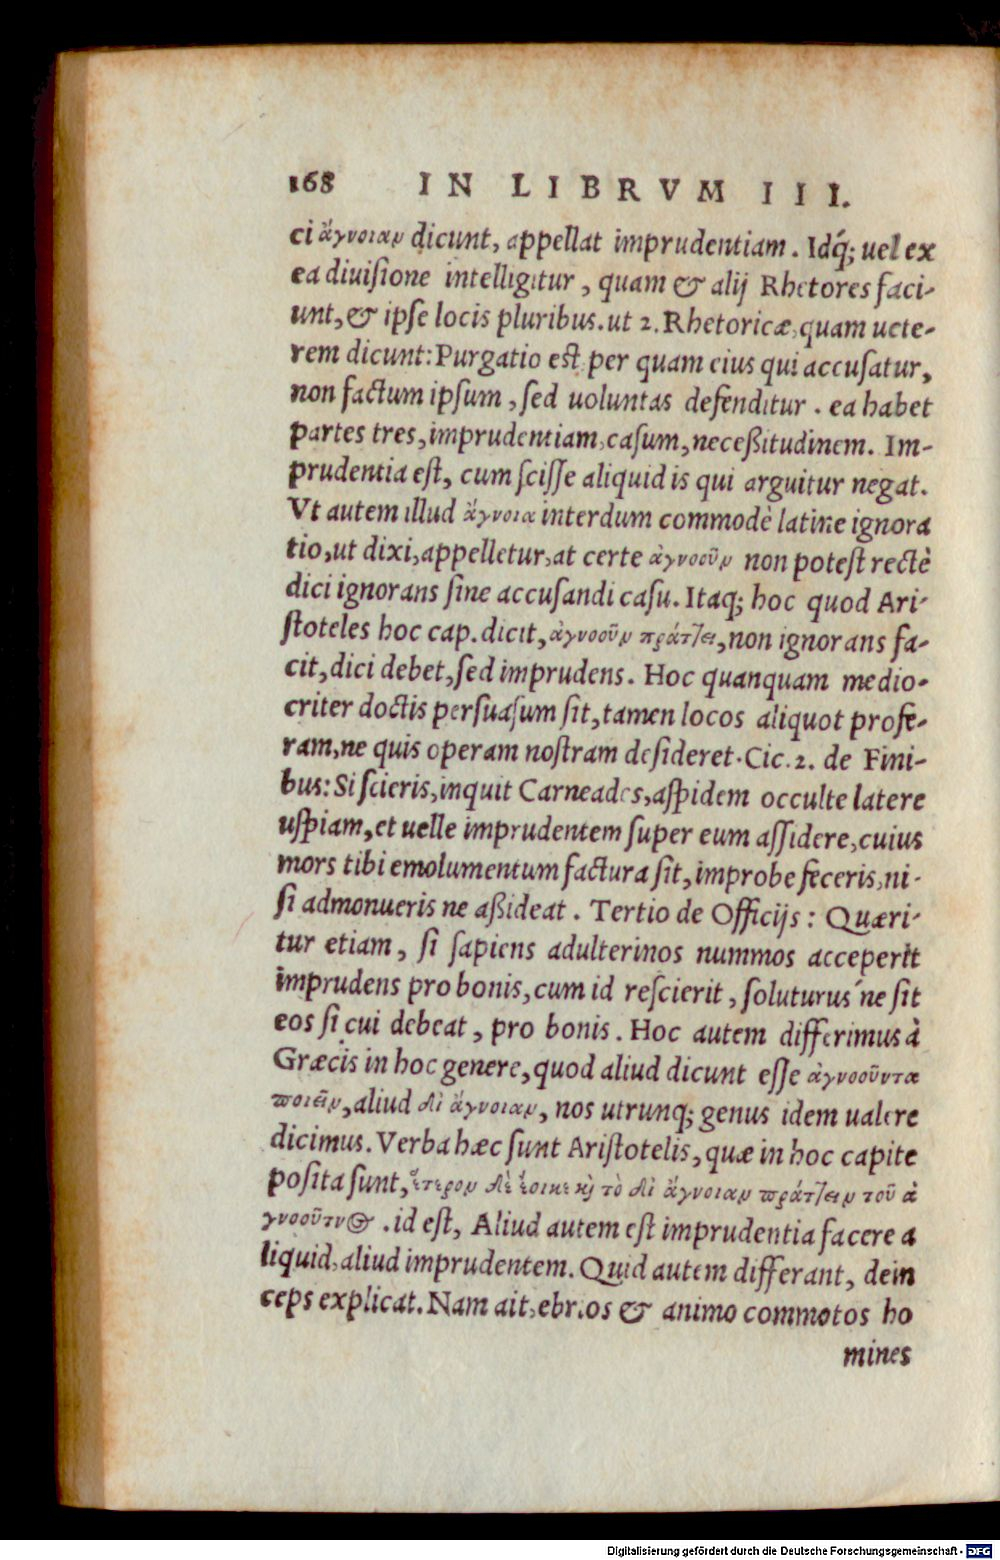 168 IN LIBRVM III.
ci ἄγνοιαν dicunt, appellat imprudentiam. Idq́; uel ex
ea diuiſione intelligitur, quam & alij Rhetores faci-
unt, & ipſe locis pluribus. ut 2. Rhetoricæ, quam uete-
rem dicunt: Purgatio eſt per quam eius qui accuſatur,
non factum ipſum, ſed uoluntas defenditur. ea habet
partes tres, imprudentiam, caſum, neceßitudinem. Im-
prudentia eſt, cum ſciſſe aliquid is qui arguitur negat.
Vt autem illud ἄγνοια interdum commodè latine ignora
tio, ut dixi, appelletur, at certe ἀγνοοῦν non poteſt rectè
dici ignorans ſine accuſandi caſu. Itaq; hoc quod Ari-
ſtoteles hoc cap. dicit, ἀγνοοῦν πράτ]ει, non ignorans fa-
cit, dici debet, ſed imprudens. Hoc quanquam medio-
criter doctis perſuaſum ſit, tamen locos aliquot profe-
ram, ne quis operam noſtram deſideret. Cic. 2. de Fini-
bus: Si ſcieris, inquit Carneades, aſpidem occulte latere
uſpiam, et uelle imprudentem ſuper eum aſſidere, cuius
mors tibi emolumentum factura ſit, improbe feceris, ni-
ſi admonueris ne aßideat. Tertio de Officijs: Quæri-
tur etiam, ſi ſapiens adulterinos nummos acceperit
imprudens pro bonis, cum id reſcierit, ſoluturus´ne ſit
eos ſi cui debeat, pro bonis. Hoc autem differimus à
Græcis in hoc genere, quod aliud dicunt eſſe ἀγνοοῦντα
ποιεῖν, aliud δι ἄγνοιαν, nos utrunq; genus idem ualere
dicimus. Verba hæc ſunt Ariſtotelis, quæ in hoc capite
poſita ſunt, ἕτερον δὲ ἔοικε κὶ τὸ δι ἄγνοιαν πράτ]ειν τοῦ ἀ
γνοοῦντος. id eſt, Aliud autem eſt imprudentia facere a
liquid, aliud imprudentem. Quid autem differant, dein
ceps explicat. Nam ait, ebrios & animo commotos ho
mines
Digitalisierung gefördert durch die Deutsche Forschungsgemeinschaft - DFG